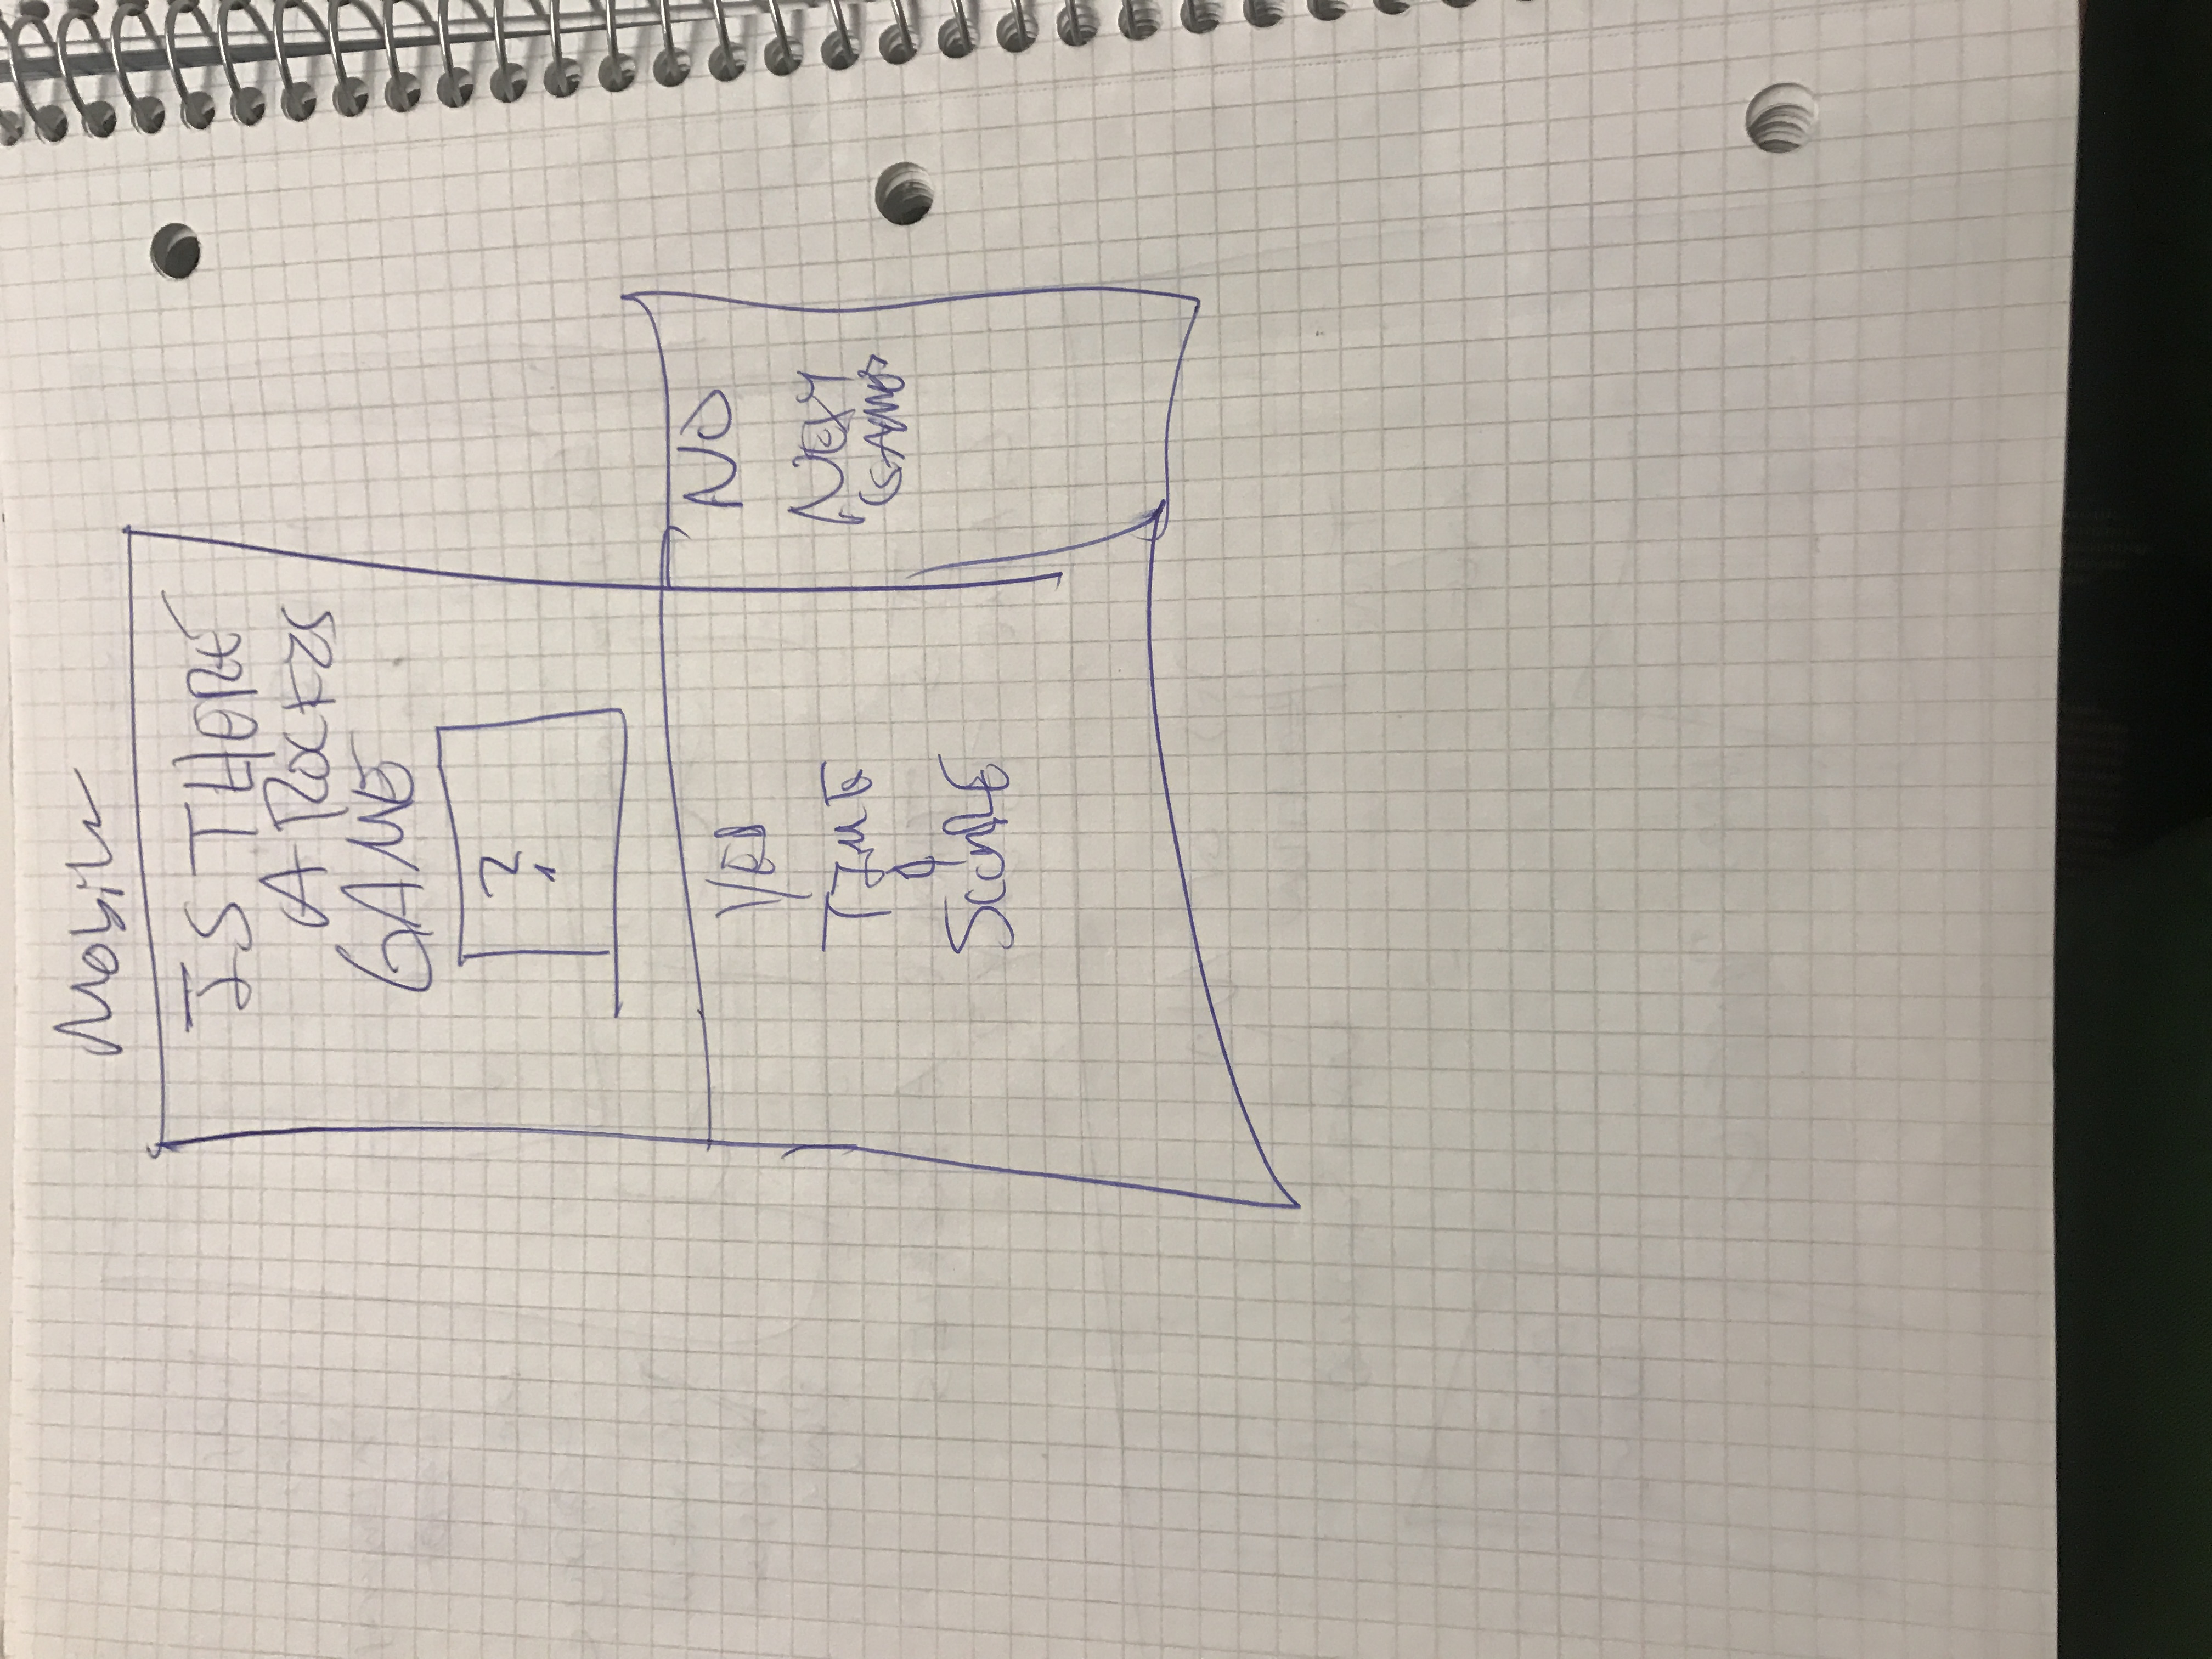 Mobile
IS THERE
A ROCKETS
GAME
?
YES
TIME
&
SCORE
NO
NEXT
GAMES